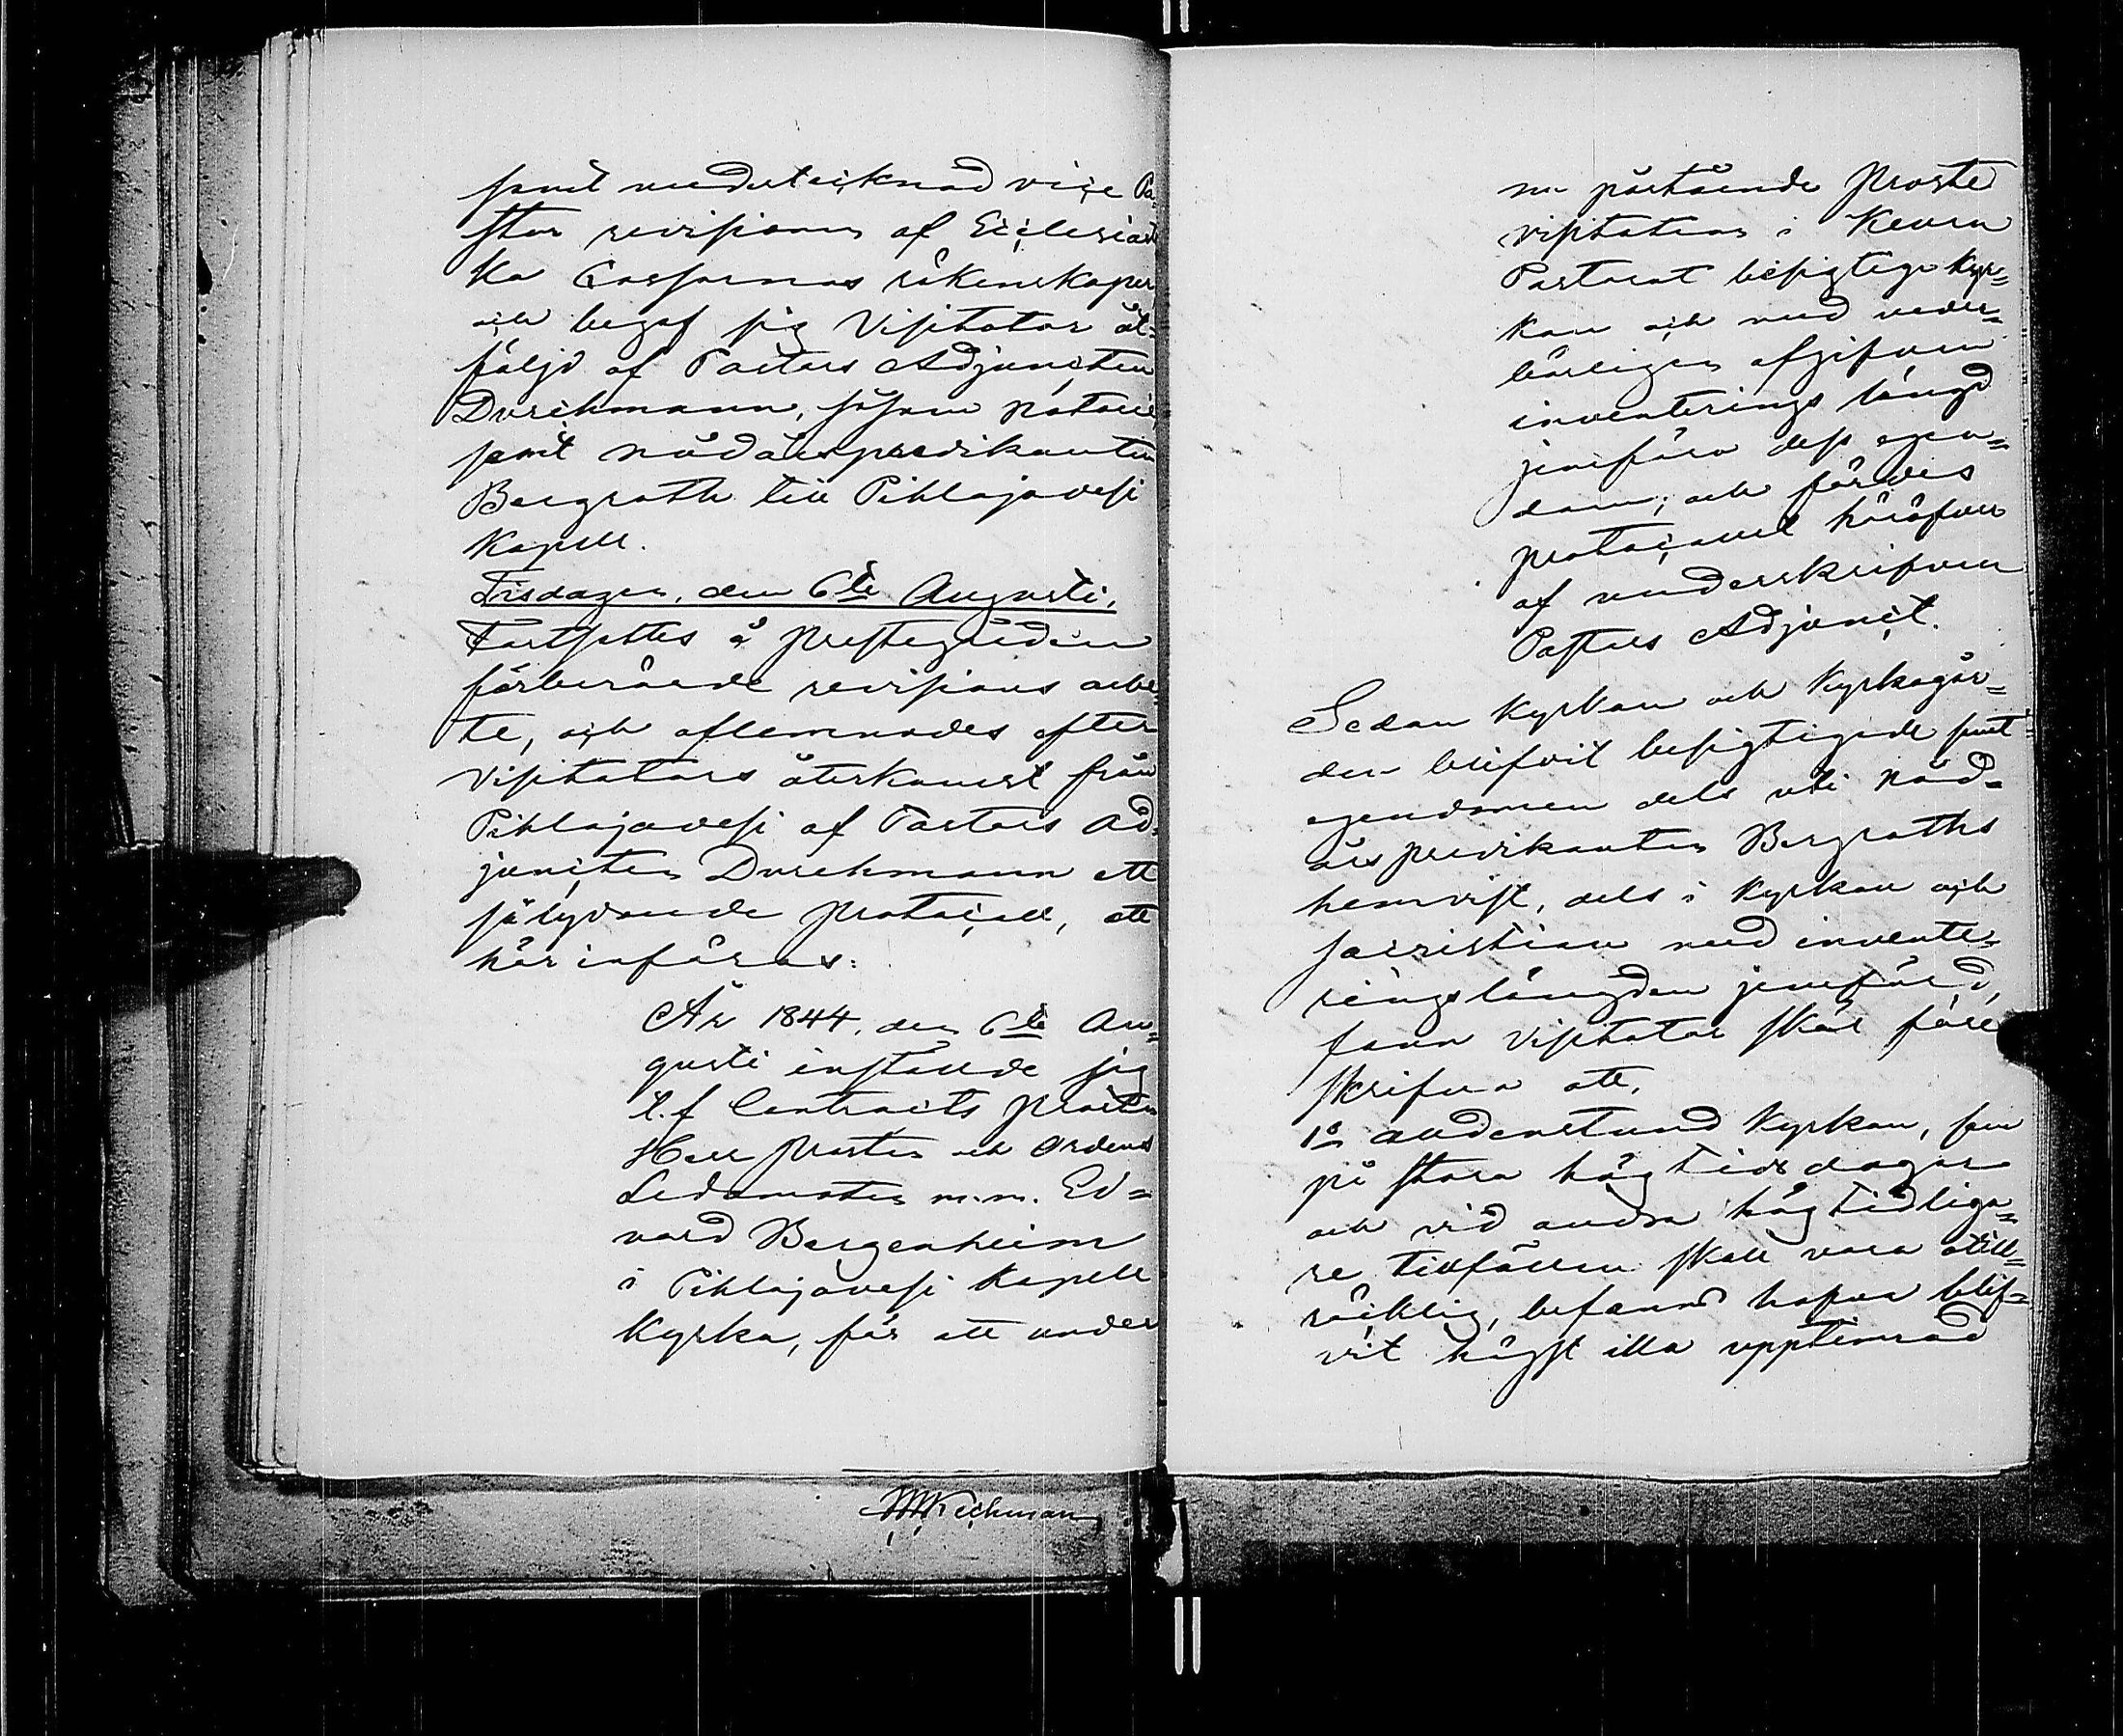 samt undertecknad vice Pa-
stor revisionen af Ecclesiasti
ka Cassornas räkenskaper
och begaf sig Visitator åt-
följd af Pastors Adjuncten
Durchmann, såsom notarie
samt nådårspredikanten
Bergroth till Pihlajavesi
Kapell.
Tisdagen, den 6te Augusti.
Fortsattes å prestegården
förberörde revisions arbe
te, och aflemnades efter
Visitators återkomst från
Pihlajavesi af Pastors Ad-
juncten Durchmann ett
så lydande protocoll, att
här införas:
År 1844, den 6te Au-
gusti instälde sig
t. f Contracts prosten
Herr prosten och Ordens
Ledamoten m.m. Ed-
vard Bergenheim
i Pihlajavesi Kapell
Kyrka, för att under
nu påstående Proste
visitation i Keuru
Pastorat besigtiga Kyr-
kan och med veder-
börligen afgifven
inventerings längd
jemföra dess egen-
dom; och fördes
protocollet häröfver
af underskrifven
Pastors Adjunct.
Sedan Kyrkan och Kyrkogår-
den blifvit besigtigade samt
egendomen dels uti nåd-
års predikanten Bergroths
hemvist, dels i Kyrkan och
sacristian med invente-
ringslängden jemförd,
fann Visitator skäl före
skrifva att,
1o audenstund Kyrkan, som
på stora högtidsdagar
och vid andra högtidliga-
re tillfällen skall vara otill-
räcklig, befanns hafva blif-
vit högst illa upptimrad
KWRechman